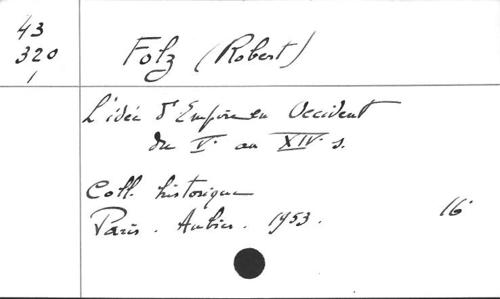 43
320
1
Folz (Robert)
L'idée d'Empire en Occident
du V. au XIV. s.
Coll. historique
Paris. Aubier. 1953. 16°